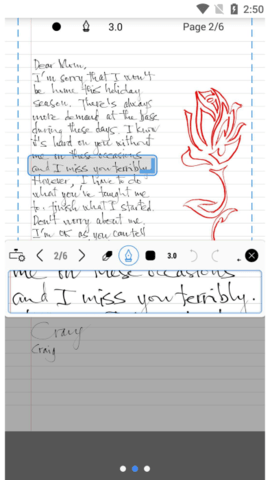 2:50
3.0 Page 2/6
Dear Mom,
I'm sorry that I won't
be home this holiday
season. There's always
more demand at the base
during these days. I know
it's hard on you without
me in these occasions
and I miss you terribly.
However, I have to do
what you've taught me
to: finish what I started.
Don't worry about me.
I'm OK as you can tell
2/6 3.0
me in these occasions
and I miss you terribly.
Craig
Craig